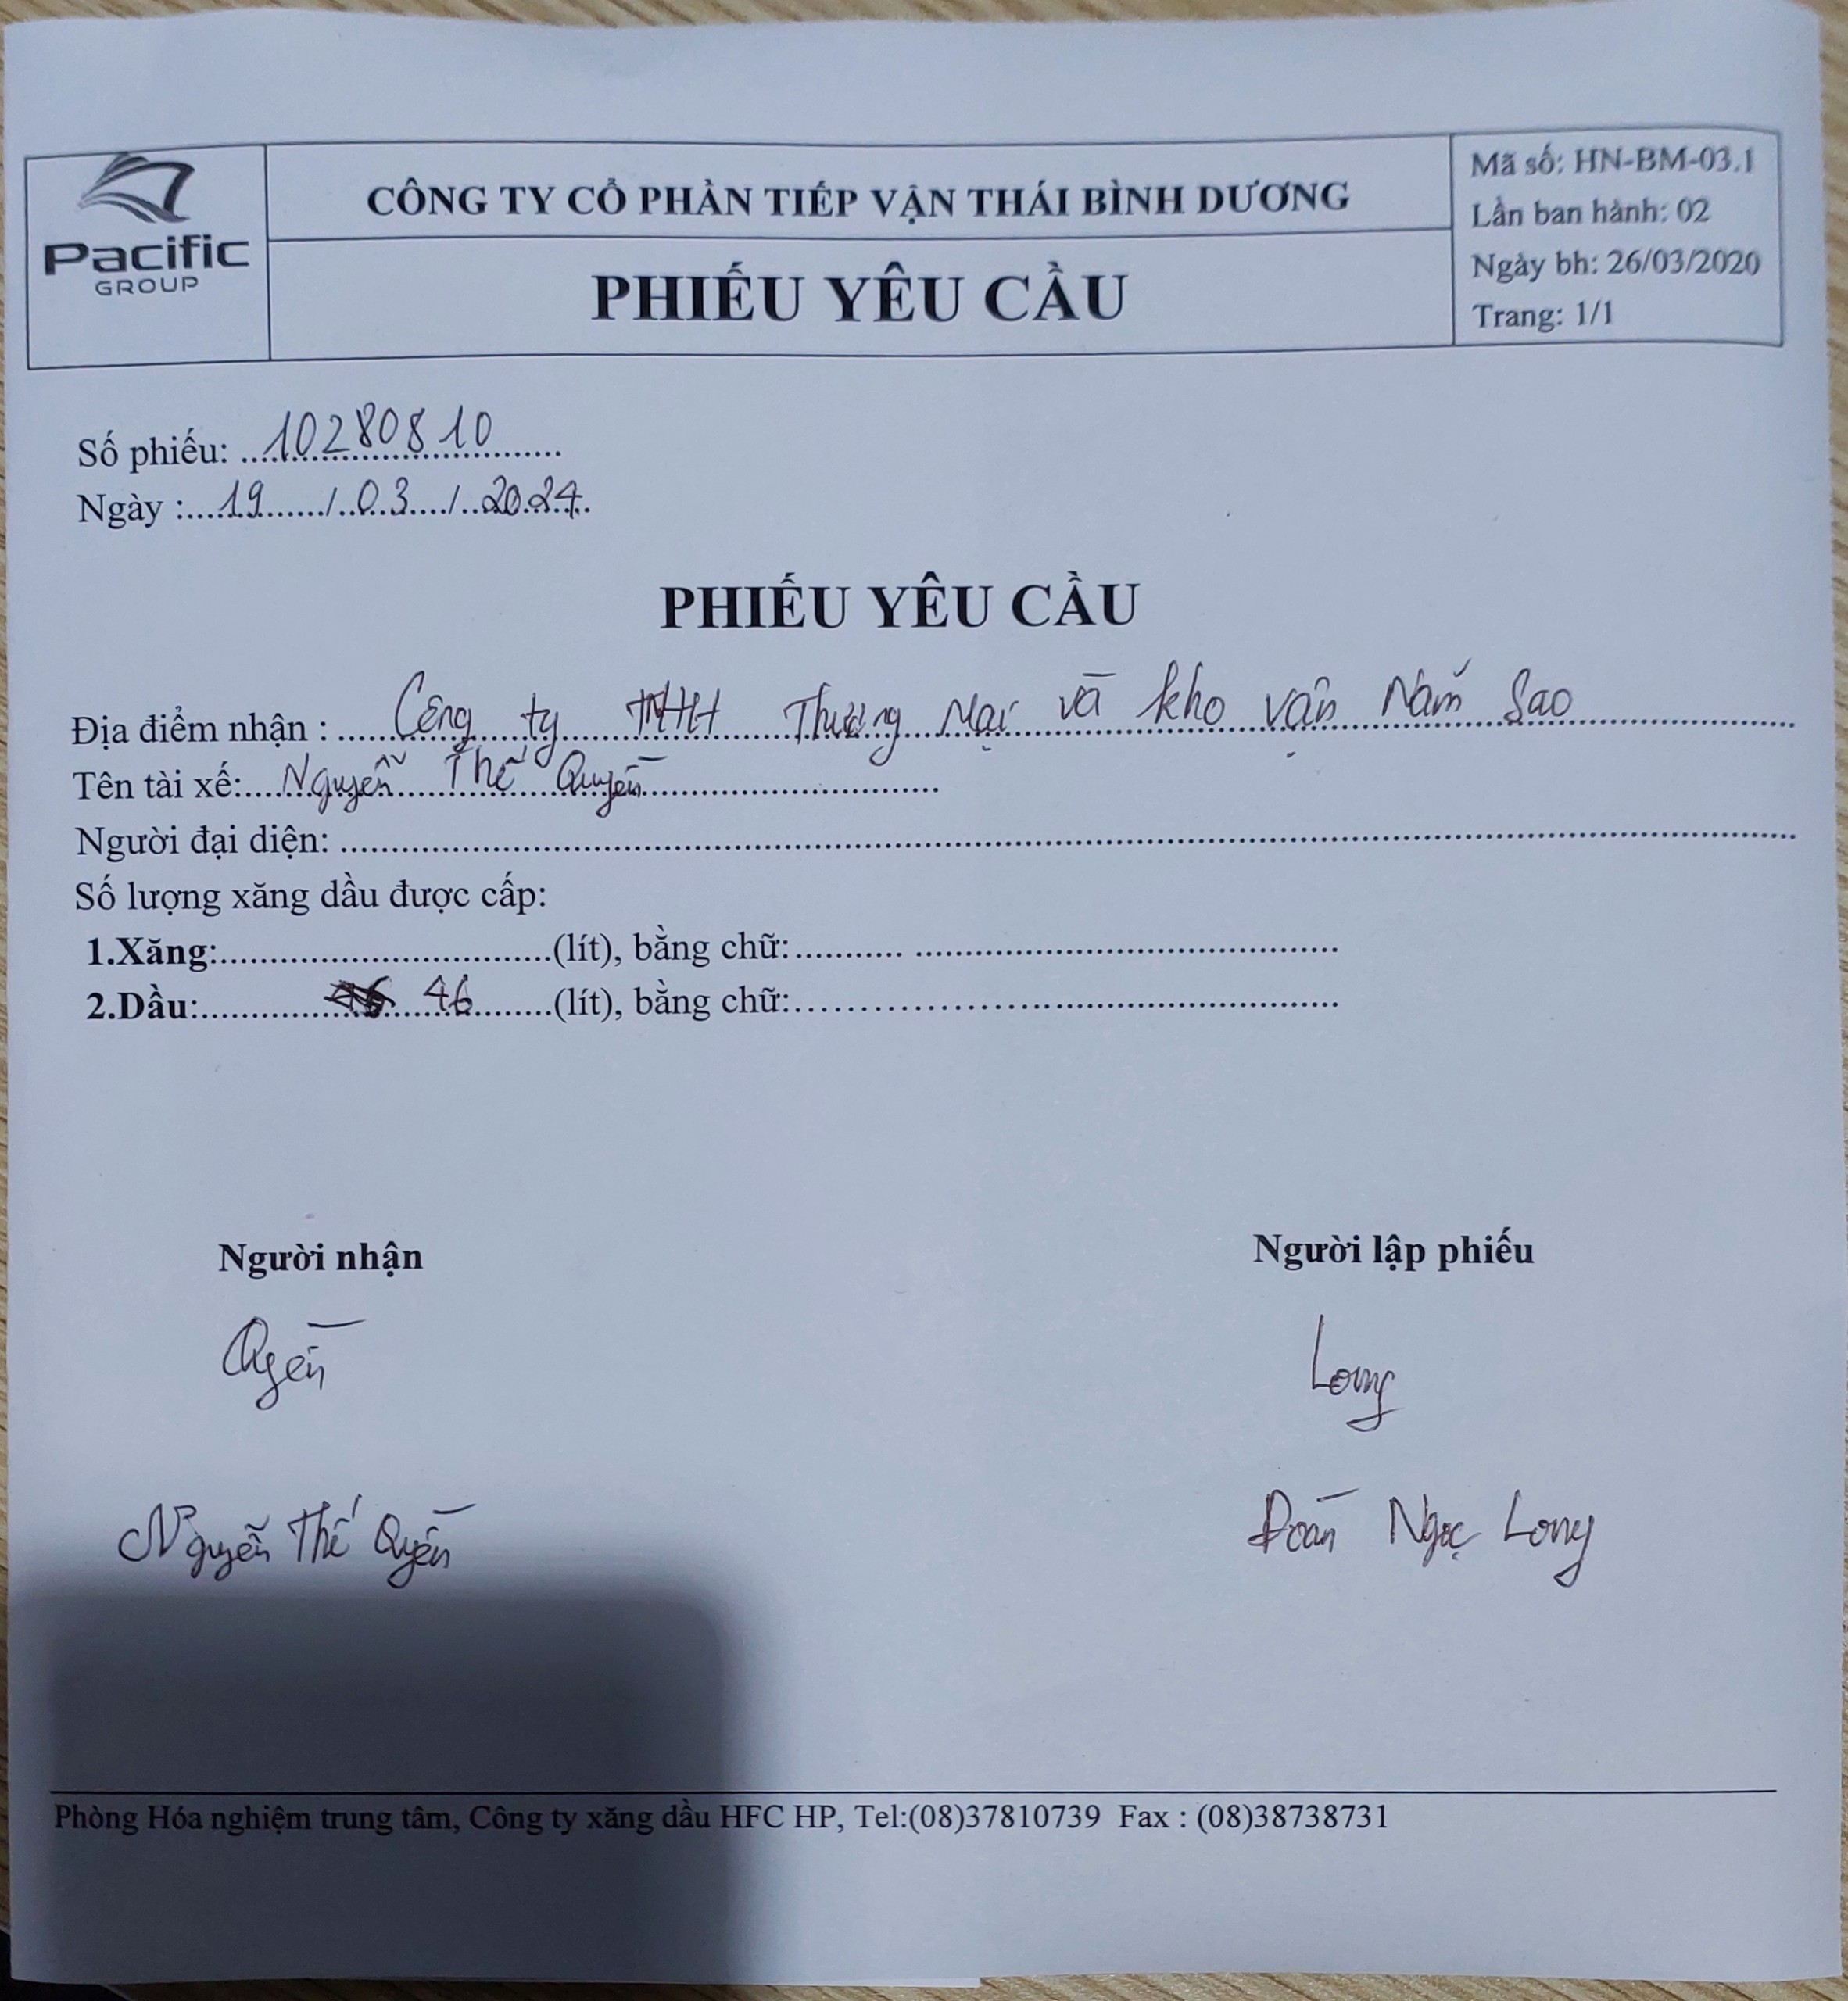 Pacific
GROUP
CÔNG TY CỔ PHẦN TIẾP VẬN THÁI BÌNH DƯƠNG
PHIẾU YÊU CẦU
Mã số: HN-BM-03.1
Lần ban hành: 02
Ngày bh: 26/03/2020
Trang: 1/1
Số phiếu: 10280810
Ngày : 19 / 03 / 2024
PHIẾU YÊU CẦU
Địa điểm nhận : Công ty TNHH Thương Mại và kho vận Năm Sao
Tên tài xế: Nguyễn Thế Quyền
Người đại diện:
Số lượng xăng dầu được cấp:
1.Xăng: (lít), bằng chữ:
2.Dầu: 46 (lít), bằng chữ:
Người nhận
Người lập phiếu
Qyền
Long
Nguyễn Thế Quyền
Đoàn Ngọc Long
Phòng Hóa nghiệm trung tâm, Công ty xăng dầu HFC HP, Tel:(08)37810739 Fax : (08)38738731